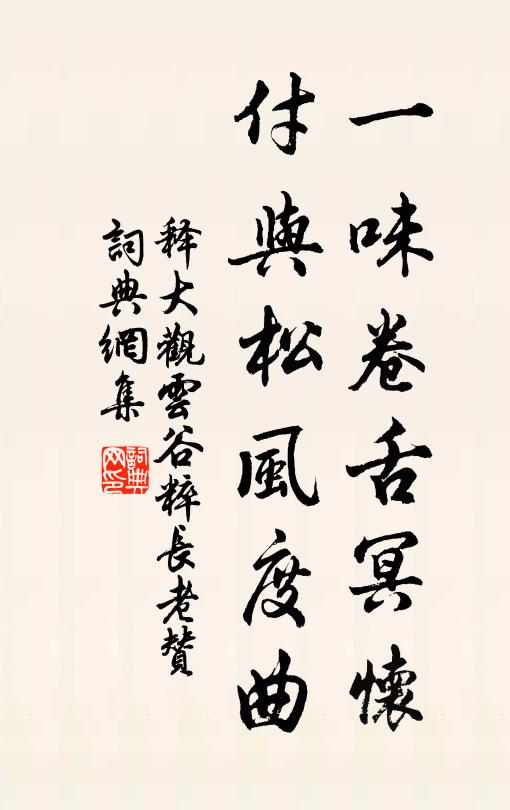 一味卷舌冥懷
付與松風度曲
释大觀雲谷粹長老贊
詞典網集
詞典网印